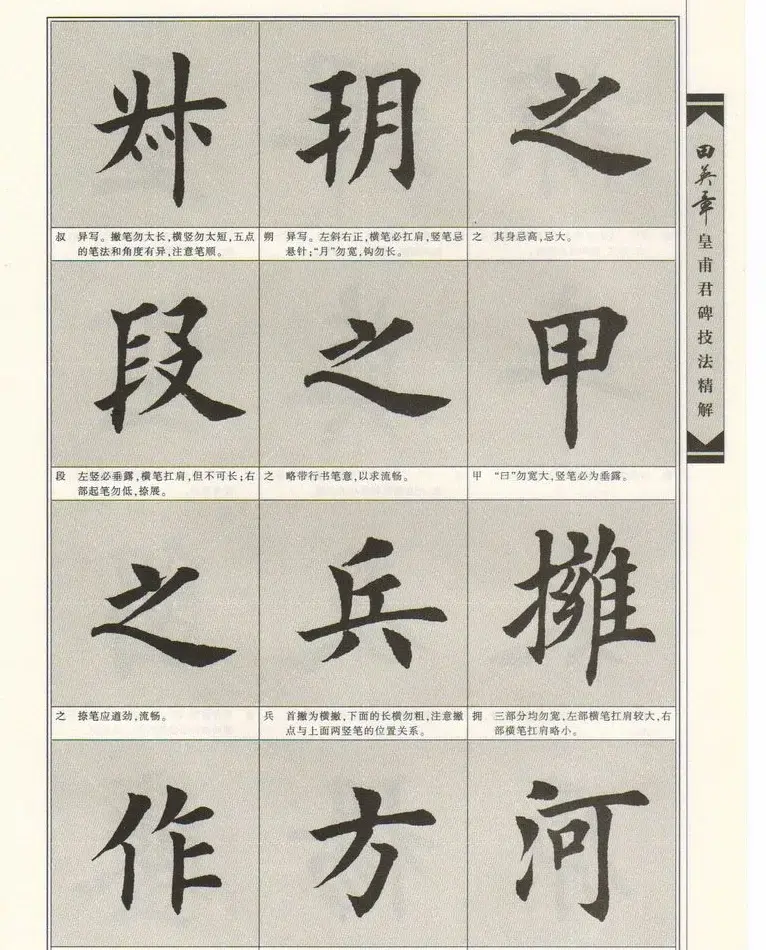 之
之 其身忌高,忌大。
甲
甲 “曰”勿宽大,竖笔必为垂露。
擁
拥 三部分均勿宽,左部横笔扛肩较大,右
部横笔扛肩略小。
河
朔
朔 异写。左斜右正,横笔必扛肩,竖笔忌
悬针;“月”勿宽,钩勿长。
之
之 略带行书笔意,以求流畅。
兵
兵 首撇为横撇,下面的长横勿粗,注意撇
点与上面两竖笔的位置关系。
作
叔
叔 异写。撇笔勿太长,横竖勿太短,五点
的笔法和角度有异,注意笔顺。
段
段 左竖必垂露,横笔扛肩,但不可长;右
部起笔勿低,捺展。
之
之 捺笔应遒劲,流畅。
方
田英章皇甫君碑技法精解